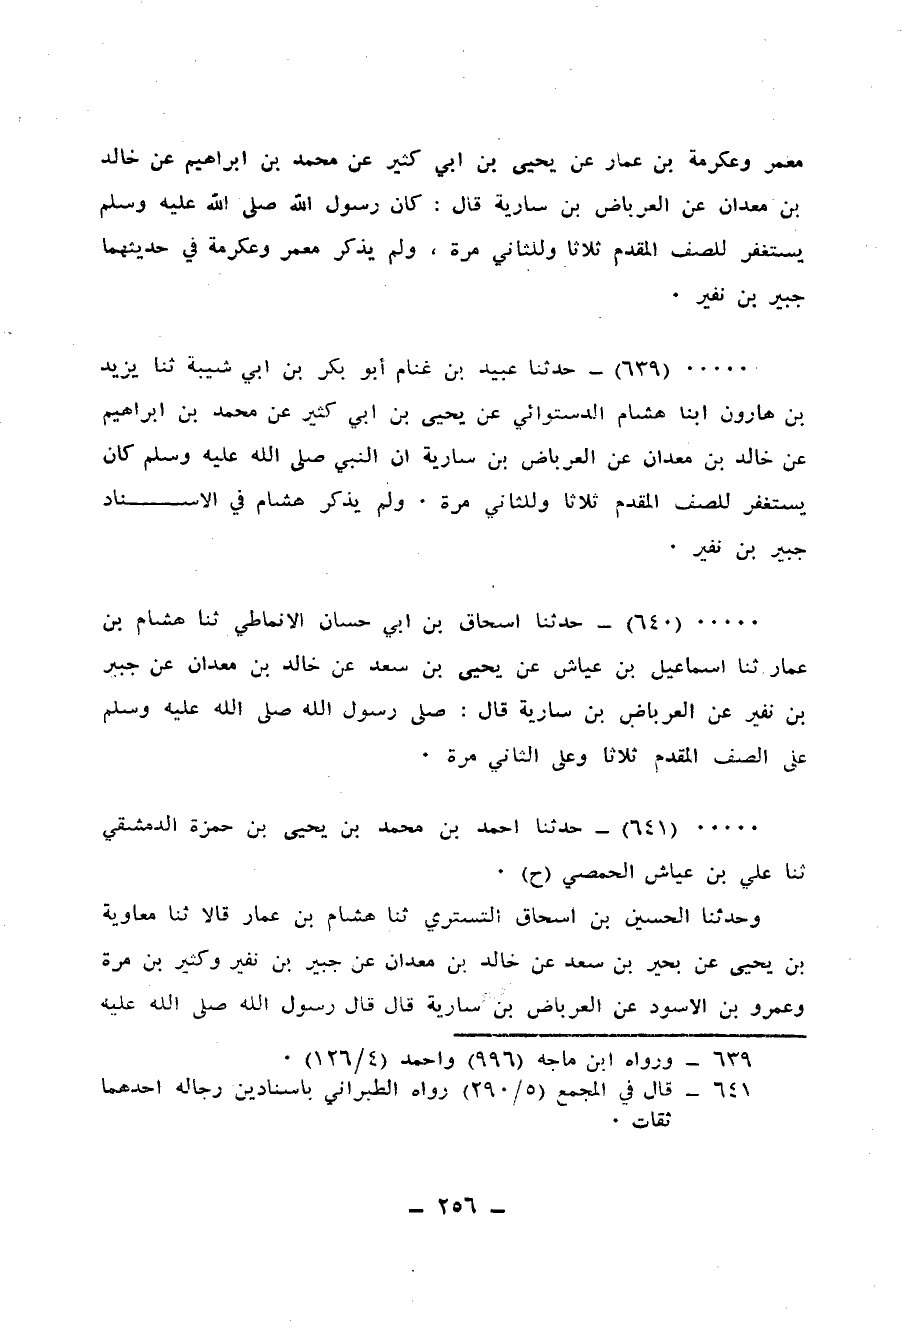 معمر وعكرمة بن عمار عن يحيى بن ابي كثير عن محمد بن ابراهيم عن خالد
بن معدان عن العرباض بن سارية قال : كان رسول الله صلى الله عليه وسلم
يستغفر للصف المقدم ثلاثا وللثاني مرة ، ولم يذكر معمر وعكرمة في حديثهما
جبير بن نفير ٠
٠٠٠٠٠ (٦٣٩) ـ حدثنا عبيد بن غنام أبو بكر بن ابي شيبة ثنا يزيد
بن هارون ابنا هشام الدستوائي عن يحيى بن ابي كثير عن محمد بن ابراهيم
عن خالد بن معدان عن العرباض بن سارية ان النبي صلى الله عليه وسلم كان
يستغفر للصف المقدم ثلاثا وللثاني مرة ٠ ولم يذكر هشام في الاســـــناد
جبير بن نفير ٠
٠٠٠٠٠ (٦٤٠) ـ حدثنا اسحاق بن ابي حسان الانماطي ثنا هشام بن
عمار ثنا اسماعيل بن عياش عن يحيى بن سعد عن خالد بن معدان عن جبير
بن نفير عن العرباض بن سارية قال : صلى رسول الله صلى الله عليه وسلم
على الصف المقدم ثلاثا وعلى الثاني مرة ٠
٠٠٠٠٠ (٦٤١) ـ حدثنا احمد بن محمد بن يحيى بن حمزة الدمشقي
ثنا علي بن عياش الحمصي (ح) ٠
وحدثنا الحسين بن اسحاق التستري ثنا هشام بن عمار قالا ثنا معاوية
بن يحيى عن بحير بن سعد عن خالد بن معدان عن جبير بن نفير وكثير بن مرة
وعمرو بن الاسود عن العرباض بن سارية قال قال رسول الله صلى الله عليه
٦٣٩ ـ ورواه ابن ماجه (٩٩٦) واحمد (١٢٦/٤) ٠
٦٤١ ـ قال في المجمع (٢٩٠/٥) رواه الطبراني باسنادين رجاله احدهما
ثقات ٠
ـ ٢٥٦ ـ